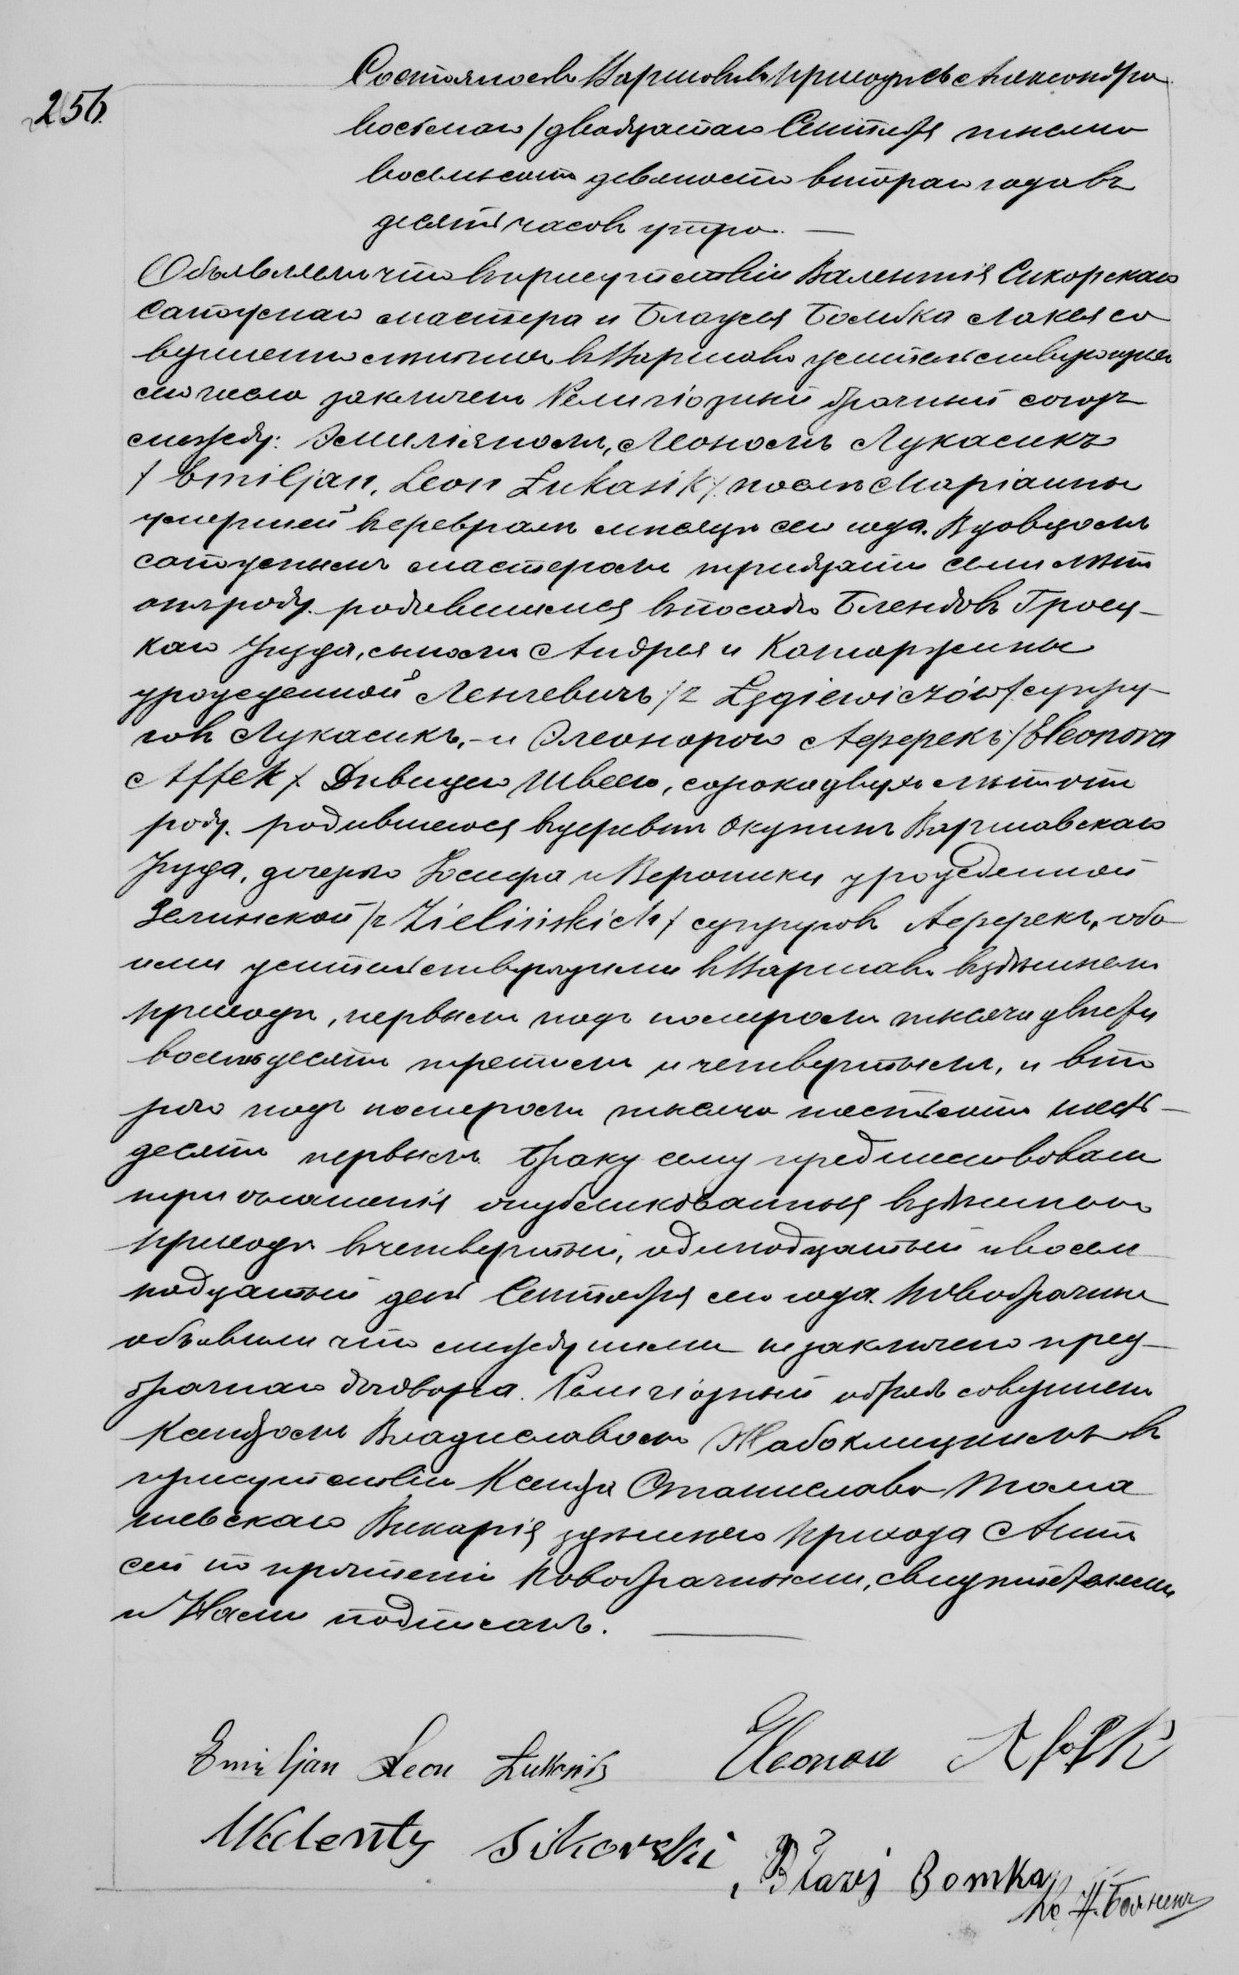 256.
Состоялось въ Варшавѣ въ приходѣ св. Александра
восьмаго /двадцатаго Сентября тысяча
восемьсотъ девяносто втораго года въ
десять часовъ утра. —
Объявляемъ что въ присутствіи Валентія Сикорскаго
сапожнаго мастера и Блажея Бомбка лакея со
вершеннолѣтнихъ въ Варшавѣ жительствующихъ
сего числа заключенъ Религіозный брачный союзъ
между: Эмиліяномъ, Леономъ Лукасикъ
/ Emiljan, Leon Łukasik / послѣ Маріанны
умершей въ Февралѣ мѣсяцѣ сего года. Вдовцомъ
сапожнымъ мастеромъ тридцати семи лѣтъ
отъ роду. родившимся въ посадѣ Блендовъ Гроец-
каго уѣзда, сыномъ Андрея и Катаржины
урожденной Ленгевичъ /z Lęgiewiczów/ супру-
говъ Лукасикъ, - и Элеонорою Афферекъ /Eleonora
Affek / Дѣвицею Швеею, сорока двухъ лѣтъ отъ
роду. родившеюся въ деревнѣ Окунинъ Варшавскаго
уѣзда, дочерью Іосифа и Вероники урожденной
Зелинской /z Zielińskich/ супруговъ Афферекъ, обо
ими жительствующими въ Варшавѣ въ здѣшнемъ
приходѣ, первымъ подъ номеромъ тысяча двѣсти
восемьдесятъ третьимъ и четвертымъ, и вто
рою подъ номеромъ тысяча шестьсотъ шесть-
десятъ первымъ. Браку сему предшествовали
три оглашенія опубликованныя въ здѣшнемъ
приходѣ въ четвертый, одинадцатый и восем
надцатый день Сентября сего года. Новобрачные
объявили что между ними не заключено пред-
брачнаго договора. Религіозный обрядъ совершенъ
Ксендзомъ Владиславомъ Жабоклицкимъ въ
присутствіи Ксендза Станислава Тома
шевскаго Викарія здѣшняго прихода Актъ
сей по прочтеніи новобрачными, свидѣтелями
и Нами подписанъ. —
Emiljan Leon Łukasik
Eleonora Afek
Walenty Sikorski
Błarzj Bomka
Кс Н.